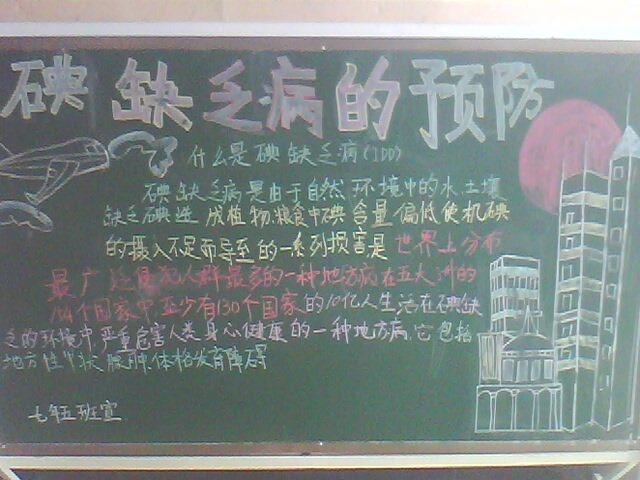 碘缺乏病的预防
什么是碘缺乏病(IDD)
碘缺乏病是由于自然环境中的水土壤
缺乏碘造成植物粮食中碘含量偏低使机碘
的摄入不足而导至的一系列损害是世界上分布
最广泛侵犯人群最多的一种地方病在五大洲的
个国家中至少有130个国家的10亿人生活在碘缺
乏的环境中严重危害人类身心健康的一种地方病,它包括
地方性甲状腺肿、体格发育障碍
七年五班宣